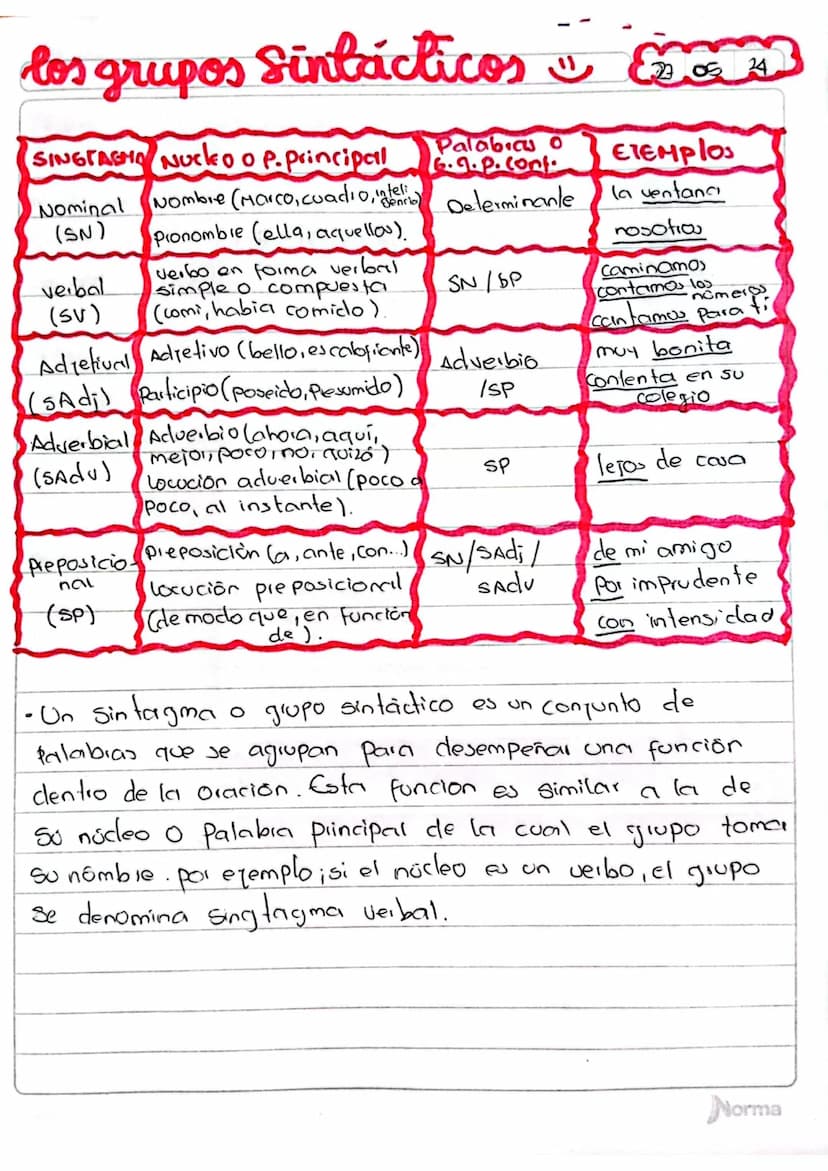 los grupos Sintácticos
27 05 24
SINGTAGMA
Nucleo o P. principal
Palabras o
G. q. p. conf.
EJEMPlos
Nominal
(SN)
Nombre (Marco, cuadro, inteli
gencia)
Pronombre (ella, aquellos).
Determinante
la ventana
nosotros
verbal
(SV)
verbo en forma verbal
simple o compuesta
(comi, habia comido).
SN / SP
caminamos
contamos los
números
cantamos para ti
Adjetival
(SAdj)
Adjetivo (bello, escalofriante)
Participio (poseido, Presumido)
Adverbio
/SP
muy bonita
contenta en su
colegio
Adverbial
(SAdv)
Adverbio (ahora, aquí,
mejor, poco, no, quizá)
locución adverbial (poco a
poco, al instante).
SP
lejos de casa
Preposicio-
nal
(SP)
Preposición (a, ante, con...)
locución preposicional
(de modo que, en función
de).
SN/SAdj/
SAdv
de mi amigo
Por imprudente
con intensidad
· Un sintagma o grupo sintáctico es un conjunto de
Palabras que se agrupan para desempeñar una función
dentro de la oración. Esta funcion es similar a la de
su núcleo o Palabra principal de la cual el grupo toma
su nombre. por ejemplo; si el núcleo es un verbo, el grupo
se denomina singtagma verbal.
Norma